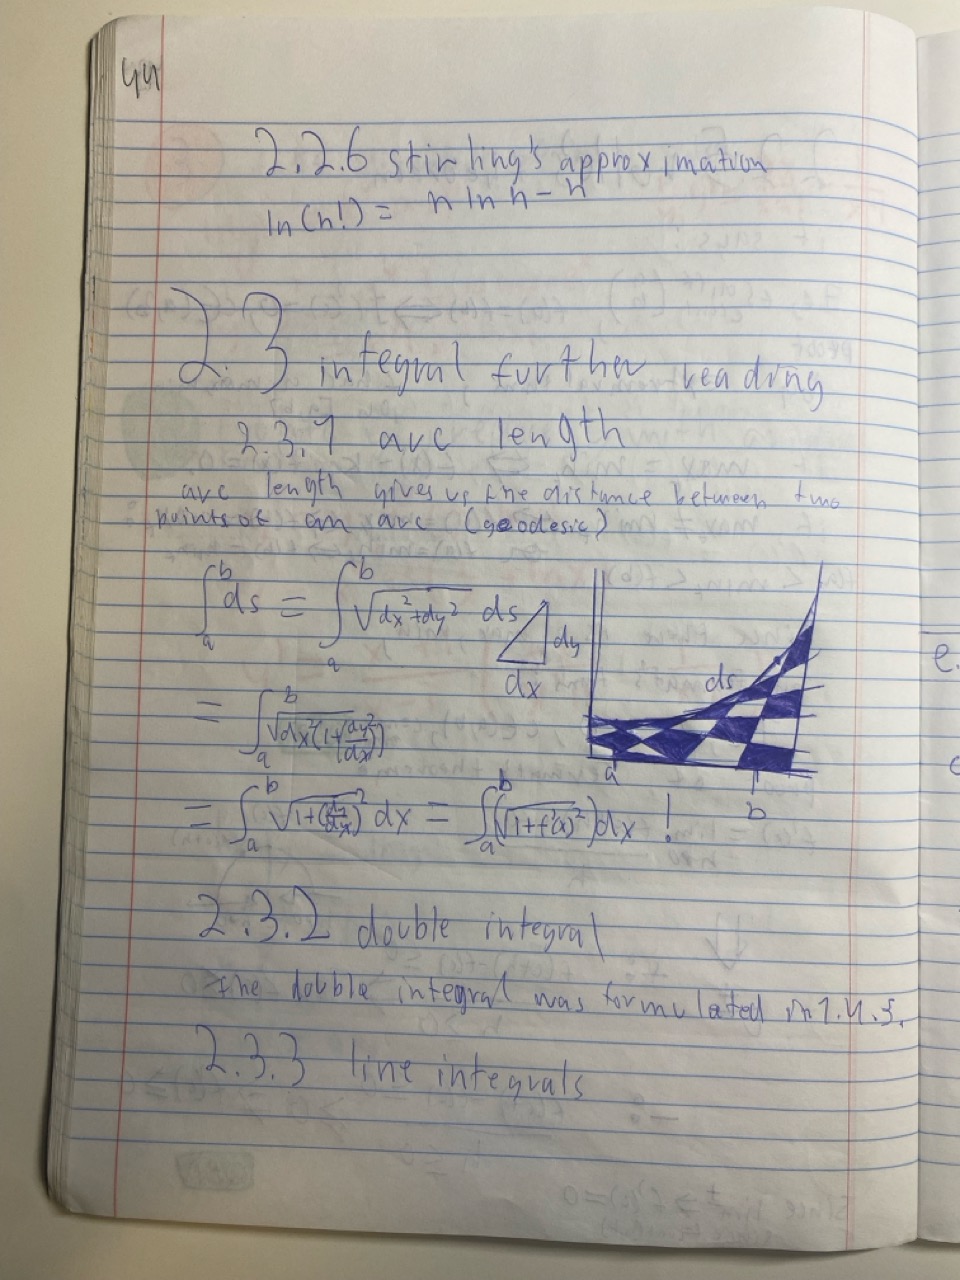 44
2.2.6 stirling's approximation
ln(n!) = n ln n - n
2.3 integral further reading
2.3.1 arc length
arc length gives us the distance between two
points of an arc (geodesic)
∫_a^b ds = ∫_a^b √(dx²+dy²)
ds
dy
dx
ds
a
b
= ∫_a^b √(dx²(1+(dy/dx)²))
= ∫_a^b √(1+(dy/dx)²) dx = ∫_a^b (√(1+f'(x)²))dx !
2.3.2 double integral
the double integral was formulated in 1.4.5.
2.3.3 line integrals